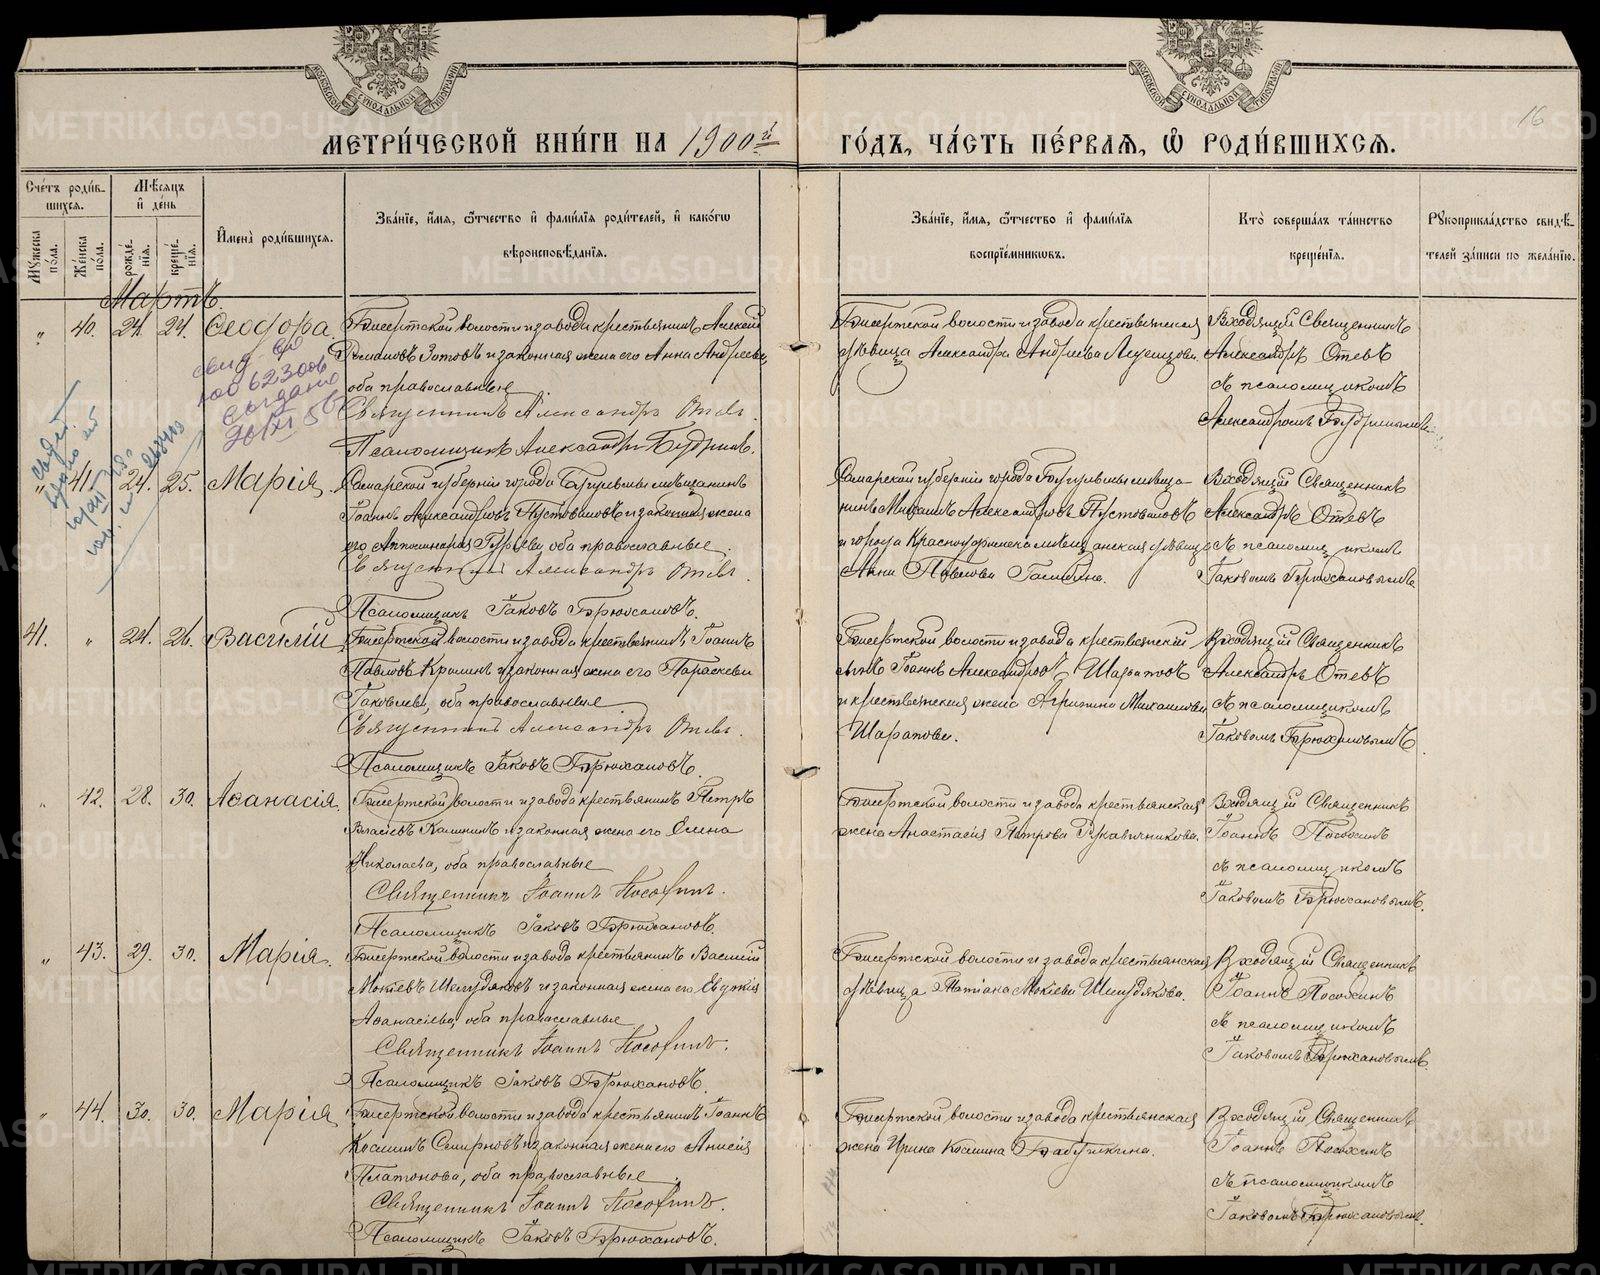 МЕТРИ́ЧЕСКОЙ КНИ́ГИ НА 1900й
ГО́ДЪ, ЧА́СТЬ ПЕ́РВАЯ, Ѽ РОДИ́ВШИХСЯ.
16
Сче́тъ роди́в-
шихся.
Мѣ́сяцъ
и҆ де́нь
И҆мена̀ роди́вшихся.
Зва́нїе, и҆́мя, ѻ҆́тчество и҆ фами́лїя роди́телей, и҆ како́гѡ
вѣроисповѣ́данїя.
Зва́нїе, и҆́мя, ѻ҆́тчество и҆ фами́лїя
воспрїе́мниковъ.
Кто̀ соверша́лъ та́инство
креще́нїя.
Рꙋкоприкла́дство свидѣ́-
телей за́писи по жела́нїю.
Мꙋ́жеска
по́ла.
Же́нска
по́ла.
рожде́-
нїя.
креще́-
нїя.
Мартъ.
„ 40. 24. 24. Ѳеодора.
Бисертской волости и завода крестьянинъ Алексій
Романовъ Зотовъ и законная жена его Анна Андреева,
оба православные
Священникъ Александръ Отевъ.
Псаломщикъ Александръ Будринъ.
Бисертской волости и завода крестьянская
дѣвица Александра Андреева
Входящій Священникъ
Александръ Отевъ
съ псаломщикомъ
Александромъ Будринымъ.
„ 41. 24. 25. Марія.
Самарской губерніи города Бугульмы мѣщанинъ
Іоаннъ Александровъ Пустоваловъ и законная жена
его Апполинарія Гурьева, оба православные.
Священникъ Александръ Отевъ.
Псаломщикъ Іаковъ Брюхановъ.
Самарской губерніи города Бугульмы мѣща-
нинъ Михаилъ Александровъ Пустоваловъ
и города Красноуфимска мѣщанская дѣвица
Анна Павлова
Входящій Священникъ
Александръ Отевъ
съ псаломщикомъ
Іаковомъ Брюхановымъ.
41. „ 24. 26. Василій
Бисертской волости и завода крестьянинъ Іоаннъ
Павловъ и законная жена его Параскева
Іаковлева, оба православные
Священникъ Александръ Отевъ.
Псаломщикъ Іаковъ Брюхановъ.
Бисертской волости и завода крестьянскій
сынъ Іоаннъ Александровъ Шараповъ
и крестьянская жена Агрипина Михаилова
Шарапова.
Входящій Священникъ
Александръ Отевъ
съ псаломщикомъ
Іаковомъ Брюхановымъ
„ 42. 28. 30. Аѳанасія.
Бисертской волости и завода крестьянинъ Петръ
Власіевъ Калининъ и законная жена его Елена
Николаева, оба православные
Священникъ Іоаннъ Посохинъ.
Псаломщикъ Іаковъ Брюхановъ.
Бисертской волости и завода крестьянская
жена Анастасія Петрова Рукавичникова.
Входящій Священникъ
Іоаннъ Посохинъ
съ псаломщикомъ
Іаковомъ Брюхановымъ.
„ 43. 29. 30. Марія.
Бисертской волости и завода крестьянинъ Василій
Мокіевъ Шелудяковъ и законная жена его Евдокія
Аѳанасіева, оба православные
Священникъ Іоаннъ Посохинъ.
Псаломщикъ Іаковъ Брюхановъ.
Бисертской волости и завода крестьянская
дѣвица Татіана Мокіева Шелудякова.
Входящій Священникъ
Іоаннъ Посохинъ
съ псаломщикомъ
Іаковомъ Брюхановымъ
„ 44. 30. 30. Марія
Бисертской волости и завода крестьянинъ Іоаннъ
Косминъ Смирновъ и законная жена его Анисія
Платонова, оба православные
Священникъ Іоаннъ Посохинъ.
Псаломщикъ Іаковъ Брюхановъ.
Бисертской волости и завода крестьянская
жена Ирина Космина Бабушкина.
Входящій Священникъ
Іоаннъ Посохинъ
съ псаломщикомъ
Іаковомъ Брюхановымъ.
METRIKI.GASO-URAL.RU